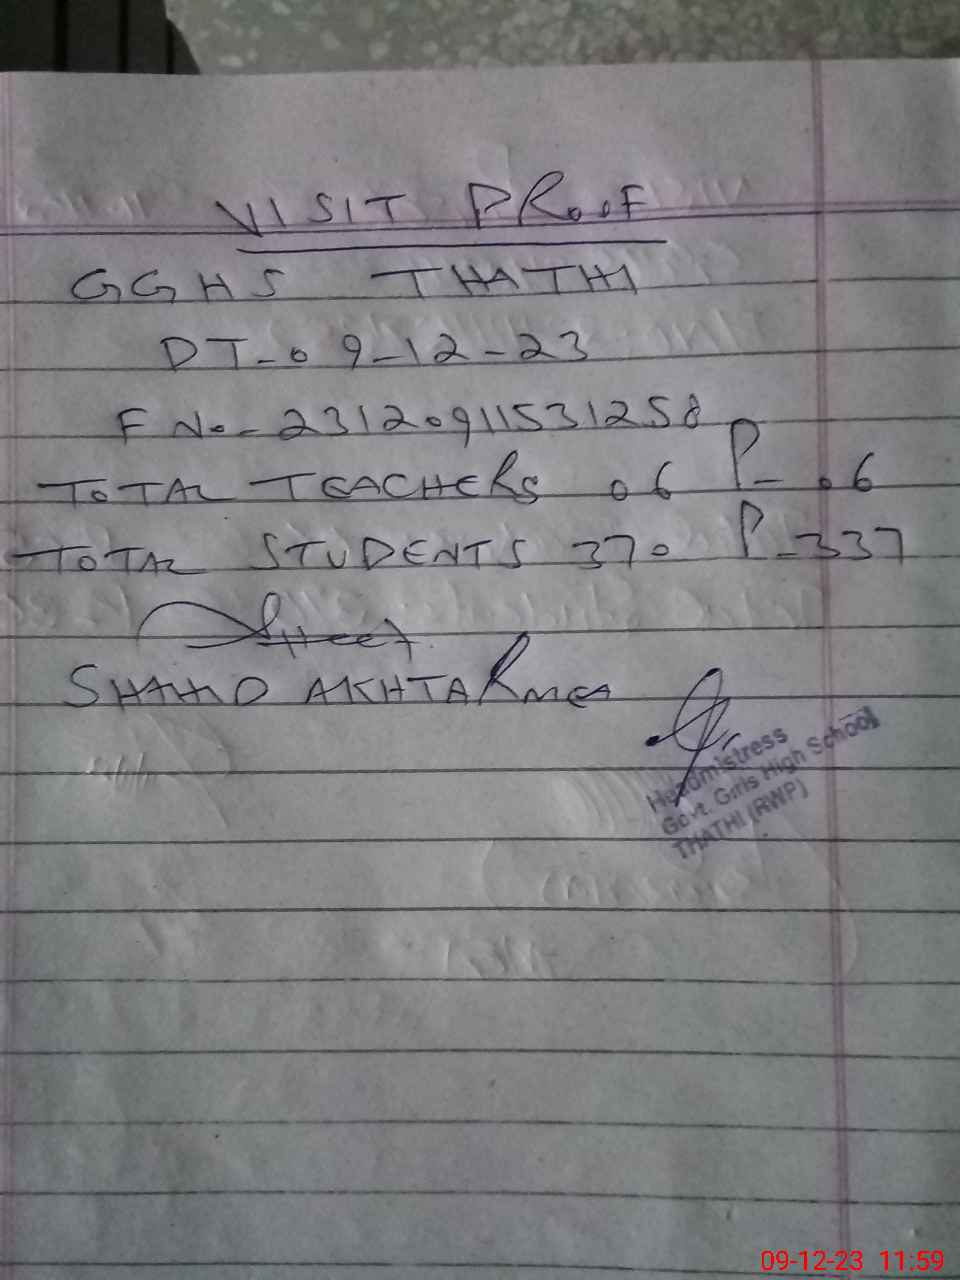 VISIT PROOF
GGHS THATHI
DT-09-12-23
F No-23120911531258
TOTAL TEACHERS 06 P-06
TOTAL STUDENTS 370 P-337
AKHTAR MEA
Headmistress
Govt. Girls High School
THATHI (RWP)
09-12-23 11:59